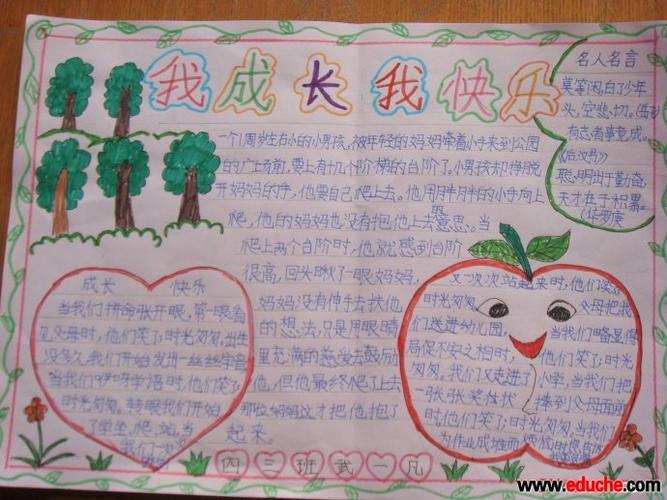 我成长我快乐
名人名言
莫等闲,白了少年
头,空悲切。(岳飞)
有志者事竟成。
《后汉书》
聪明出于勤奋,
天才在于积累。
(华罗庚
一个1周岁左右小的小男孩,被年轻的妈妈牵着小手来到公园
的广场前,要上有十几个阶梯的台阶了。小男孩却挣脱
开妈妈的手,他要自己爬上去。他用胖胖的小手向上
爬,他的妈妈也没有抱他上去意思。当
爬上两个台阶时,他就感到台阶
很高,回头瞅了一眼妈妈,
妈妈没有伸手去扶他
的想法,只是用眼睛
里充满的慈爱去鼓励
他,但他最终爬了上去
那位妈妈这才把他抱了
起来。
成长 快乐
当我们拼命张开眼,第一眼看
见父母时,他们笑了;时光匆匆,出生
没多久,我们开始发出一丝丝字音
当我们咿呀学语时,他们笑了
时光匆匆。转眼我们开始
了学坐、爬、站,当
我们一次
又一次次站起来时,他们笑了
时光匆匆
父母把我
们送进幼儿园。
当我们略显得
局促不安之相时,
他们笑了;时光
匆匆。我们又走进了
小学,当我们把
一张张奖状
捧到父母面前
时,他们笑了;时光匆匆,当我们
为作业成堆而烦恼时
四三班武一凡
www.eduche.com